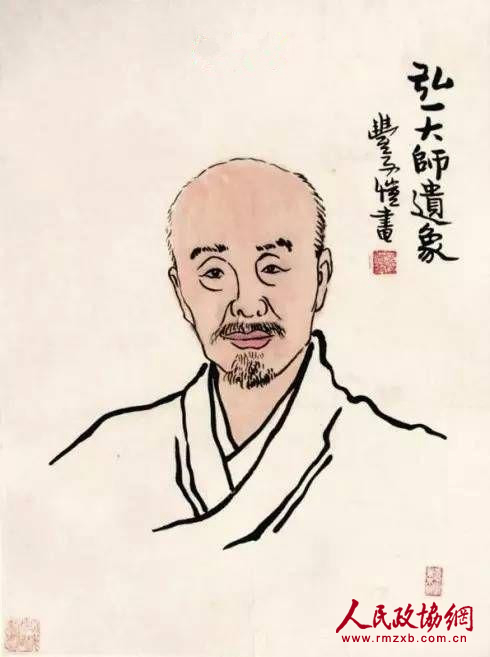 弘一大師遺象
豐子愷畫
人民政協網
www.rmzxb.com.cn